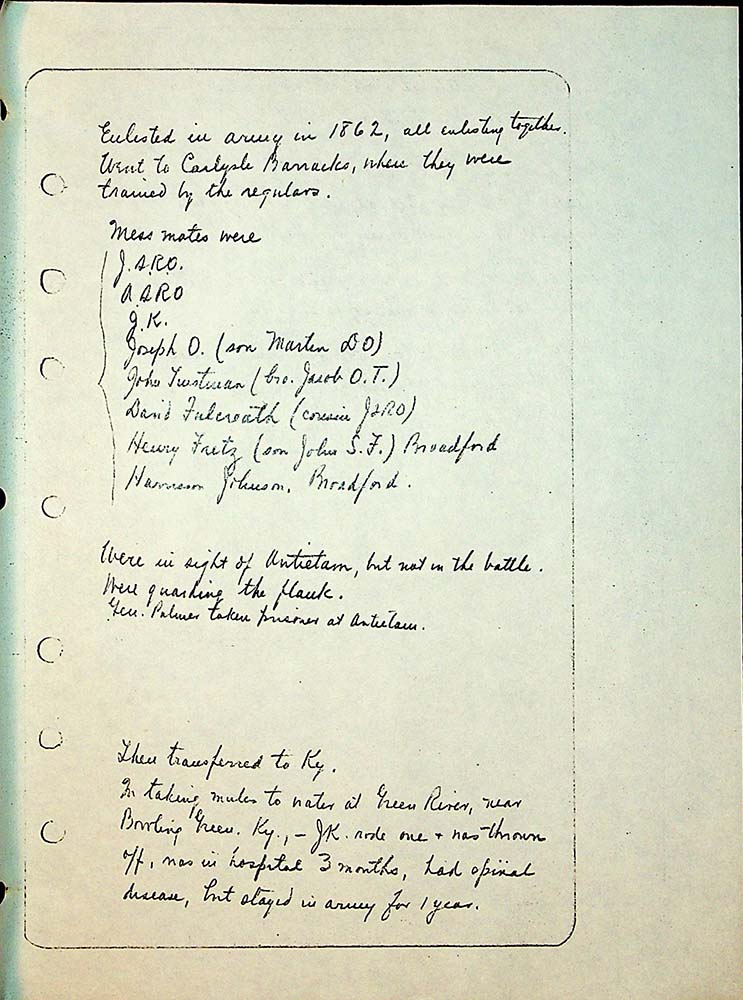 Enlisted in army in 1862, all enlisting together.
Went to Carlysle Barracks, where they were
trained by the regulars.
Mess mates were
J.S.R.O.
A.S.R.O
J.K.
Joseph O. (son Martin D O)
John Trostman (bro. Jacob O.T.)
David Fulcreath (cousin JSRO)
Henry Fritz (son John S.F.) Broadford
Harrison Johnson, Broadford.
Were in sight of Antietam, but not in the battle.
Were guarding the flank.
Gen. Palmer taken prisoner at Antietam.
Then transferred to Ky.
In taking mules to water at Green River, near
Bowling Green. Ky., – JK. rode one + was thrown
off, was in hospital 3 months, had spinal
disease, but stayed in army for 1 year.